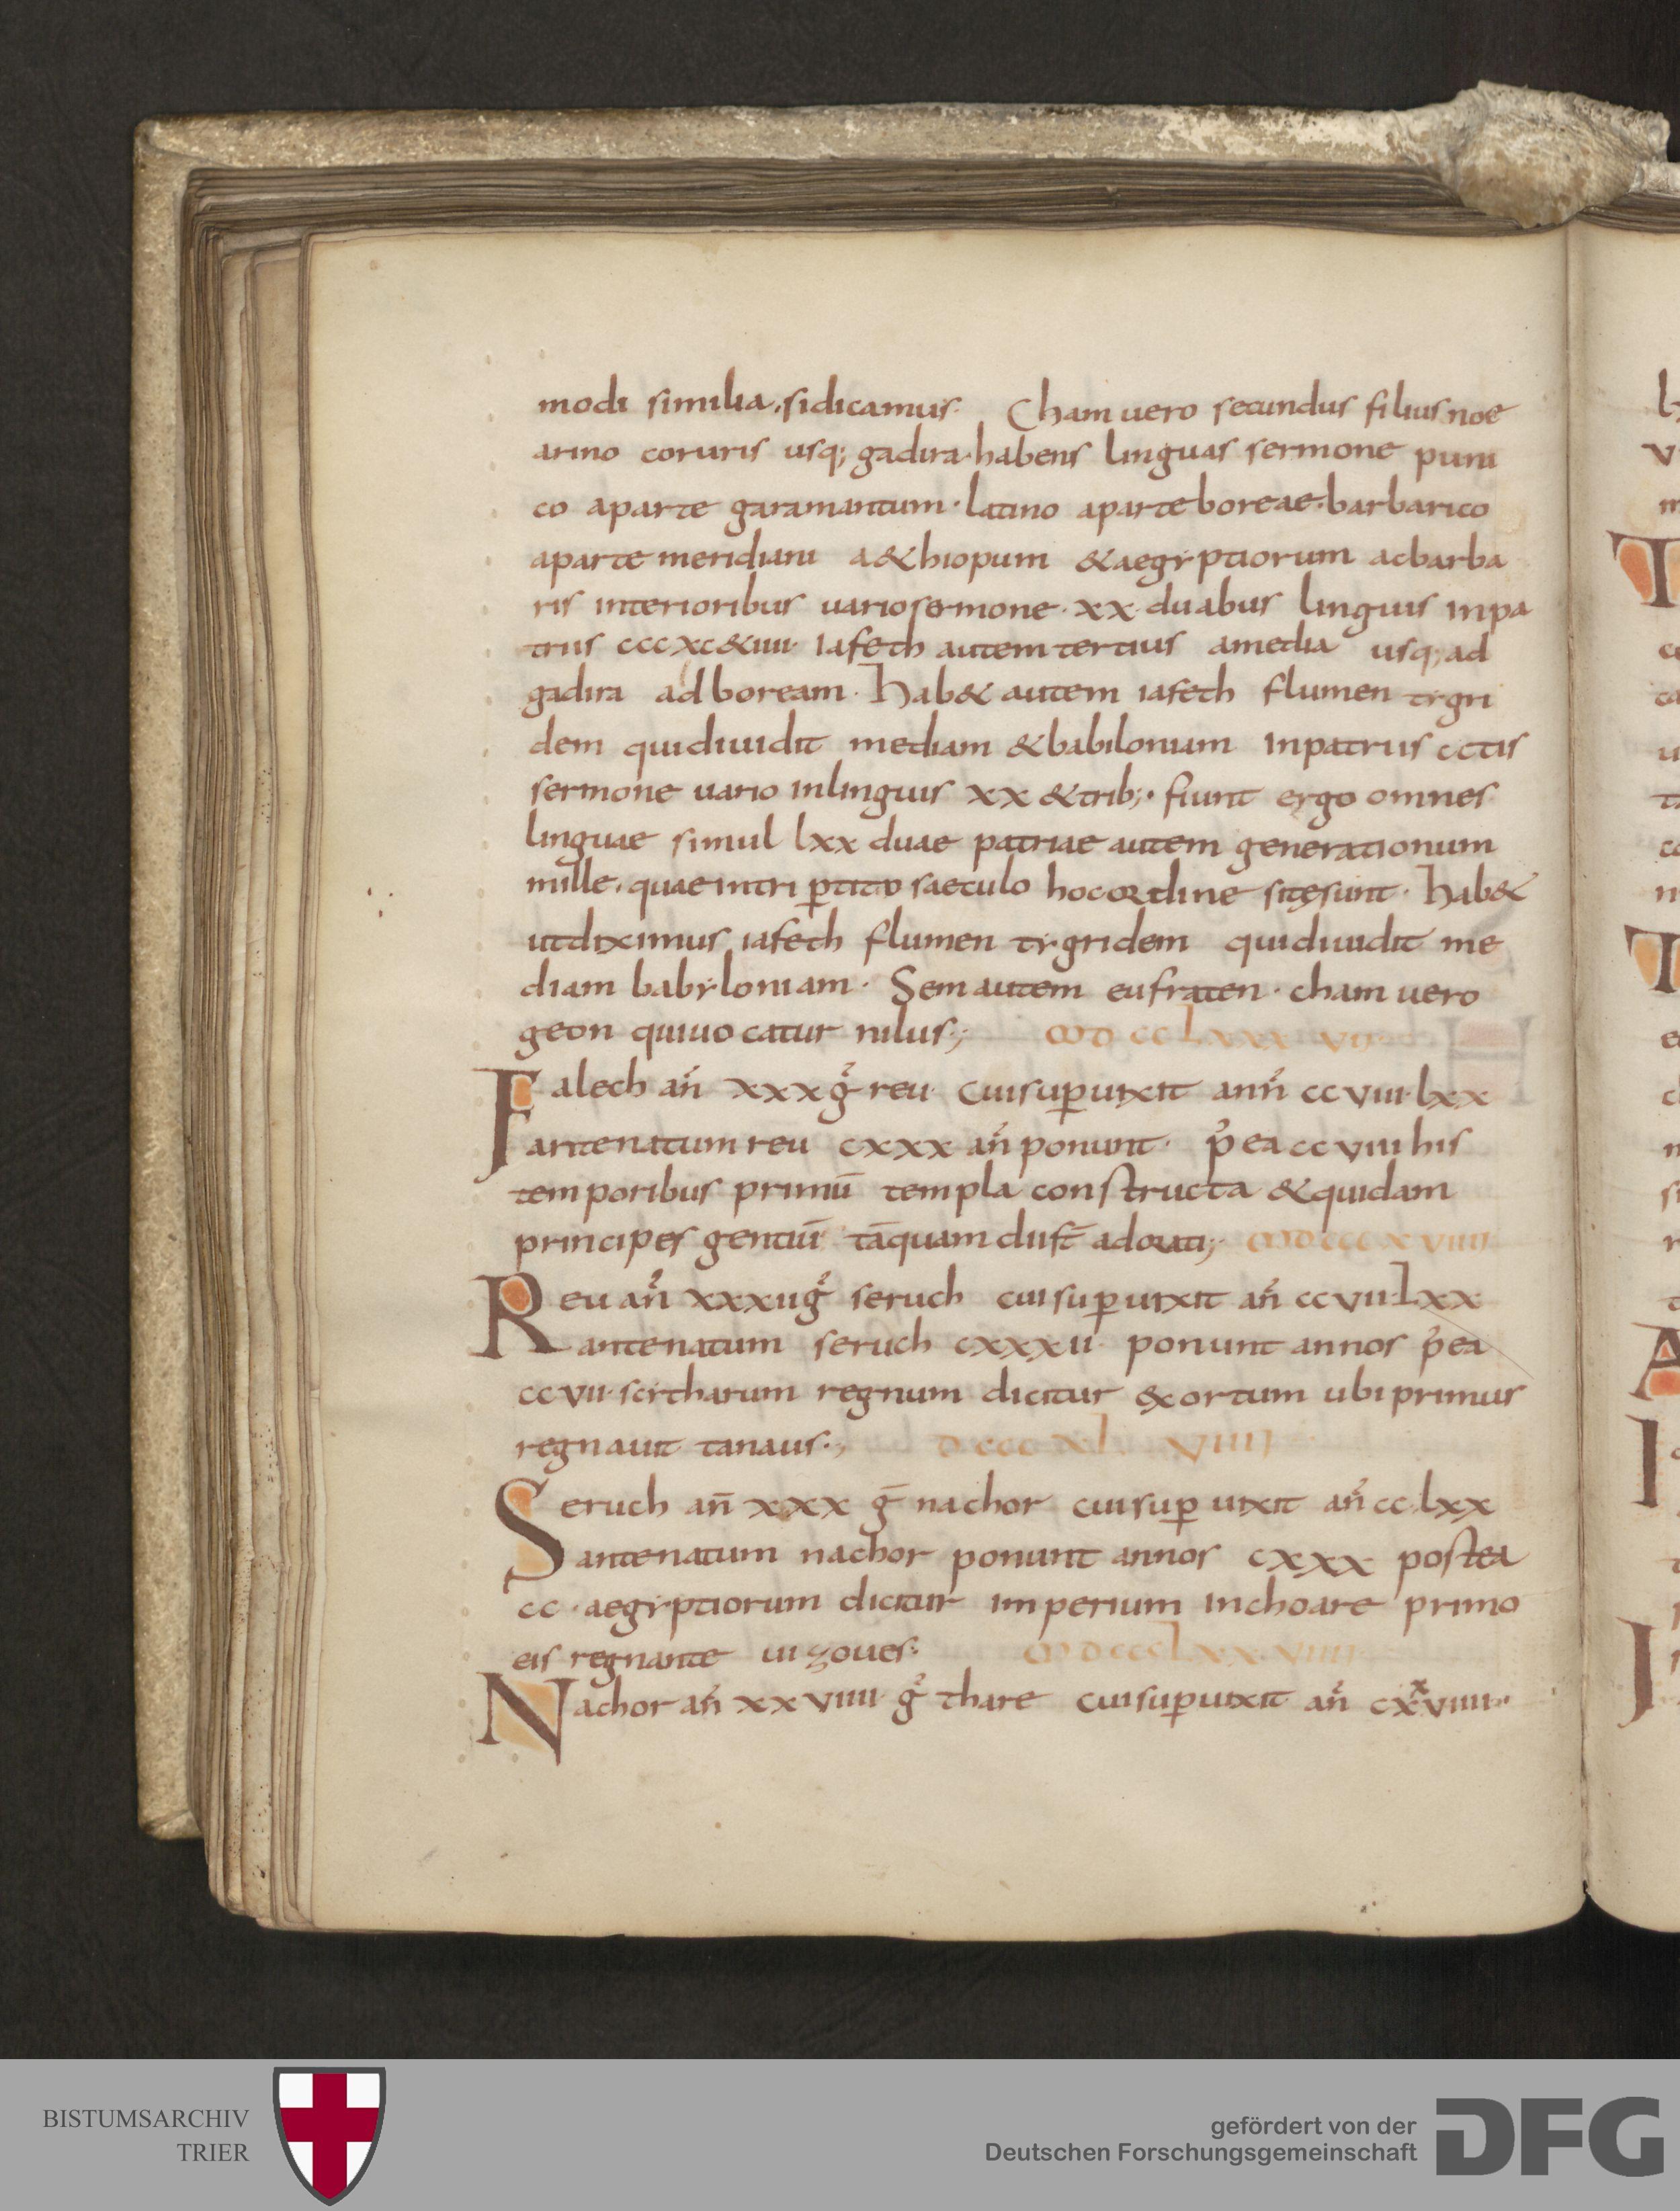 modi similia, sidicamus· Cham uero secundus filius noe
arino coruris usq; gadira· habens linguas sermone puni
co aparte garamantum· latino aparte boreae· barbarico
aparte meridiani a&hiopum &aegyptiorum acbarba
ris interioribus uario sermone· xx· duabus linguis inpa
triis cccxc&iiii· iafeth autem tertius amedia usq; ad
gadira ad boream· hab& autem iafeth flumen tygri
dem quidiuidit mediam &babiloniam inpatriis cctis
sermone uario inlinguis xx &trib;· fiunt ergo omnes
linguae simul lxx duae patriae autem generationum
mille, quae intri ꝑtito saeculo hocordine sitęsunt· hab&
utdiximus iafeth flumen tygridem quidiuidit me
diam babyloniam· Sem autem eufraten· cham uero
geon quiuocatur nilus; ꝏdcclxxxvii
Falech an̄ xxx ḡ reu· cuisuꝑuixit ann̄ ccviii· lxx
antenatum reu cxxx an̄ ponunt· p̓ea ccviii his
temporibus primū templa constructa &quidam
principes gentiū tāquam diis̄t adorati; ꝏdcccxviiii
Reu an̄ xxxii ḡ seruch cuisuꝑuixit an̄ ccvii· Lxx
antenatum seruch cxxxii· ponunt annos p̓ea
ccvii· scitharum regnum dicitur exortum ubi primus
regnauit tanaus·; dcccxlviiii
Seruch an̄ xxx ḡ nachor cuisuꝑ uixit an̄ cc· lxx
antenatum nachor ponunt annos cxxx postea
cc· aegyptiorum dicitur imperium inchoare primo
eis regnante uizoues· ꝏdccclxxviiii
Nachor an̄ xxviiii· ḡ thare cuisuꝑuixit an̄ cxxviiii·
BISTUMSARCHIV
TRIER
gefördert von der
Deutschen Forschungsgemeinschaft
DFG